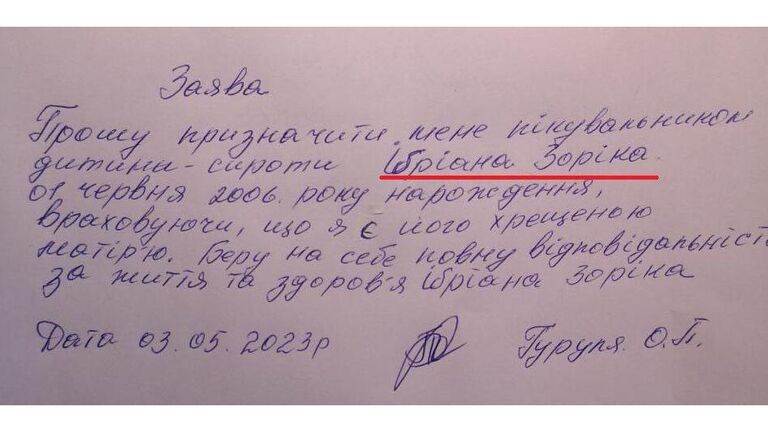 Заява
Прошу призначити мене пікувальником
дитини-сироти Ібріана Зоріна
01 червня 2006. року народження,
враховуючи, що я є його хрещеною
матір'ю. Беру на себе повну відповідальність
за життя та здоров'я Ібріана Зоріна
Дата 03.05.2023р О.П.